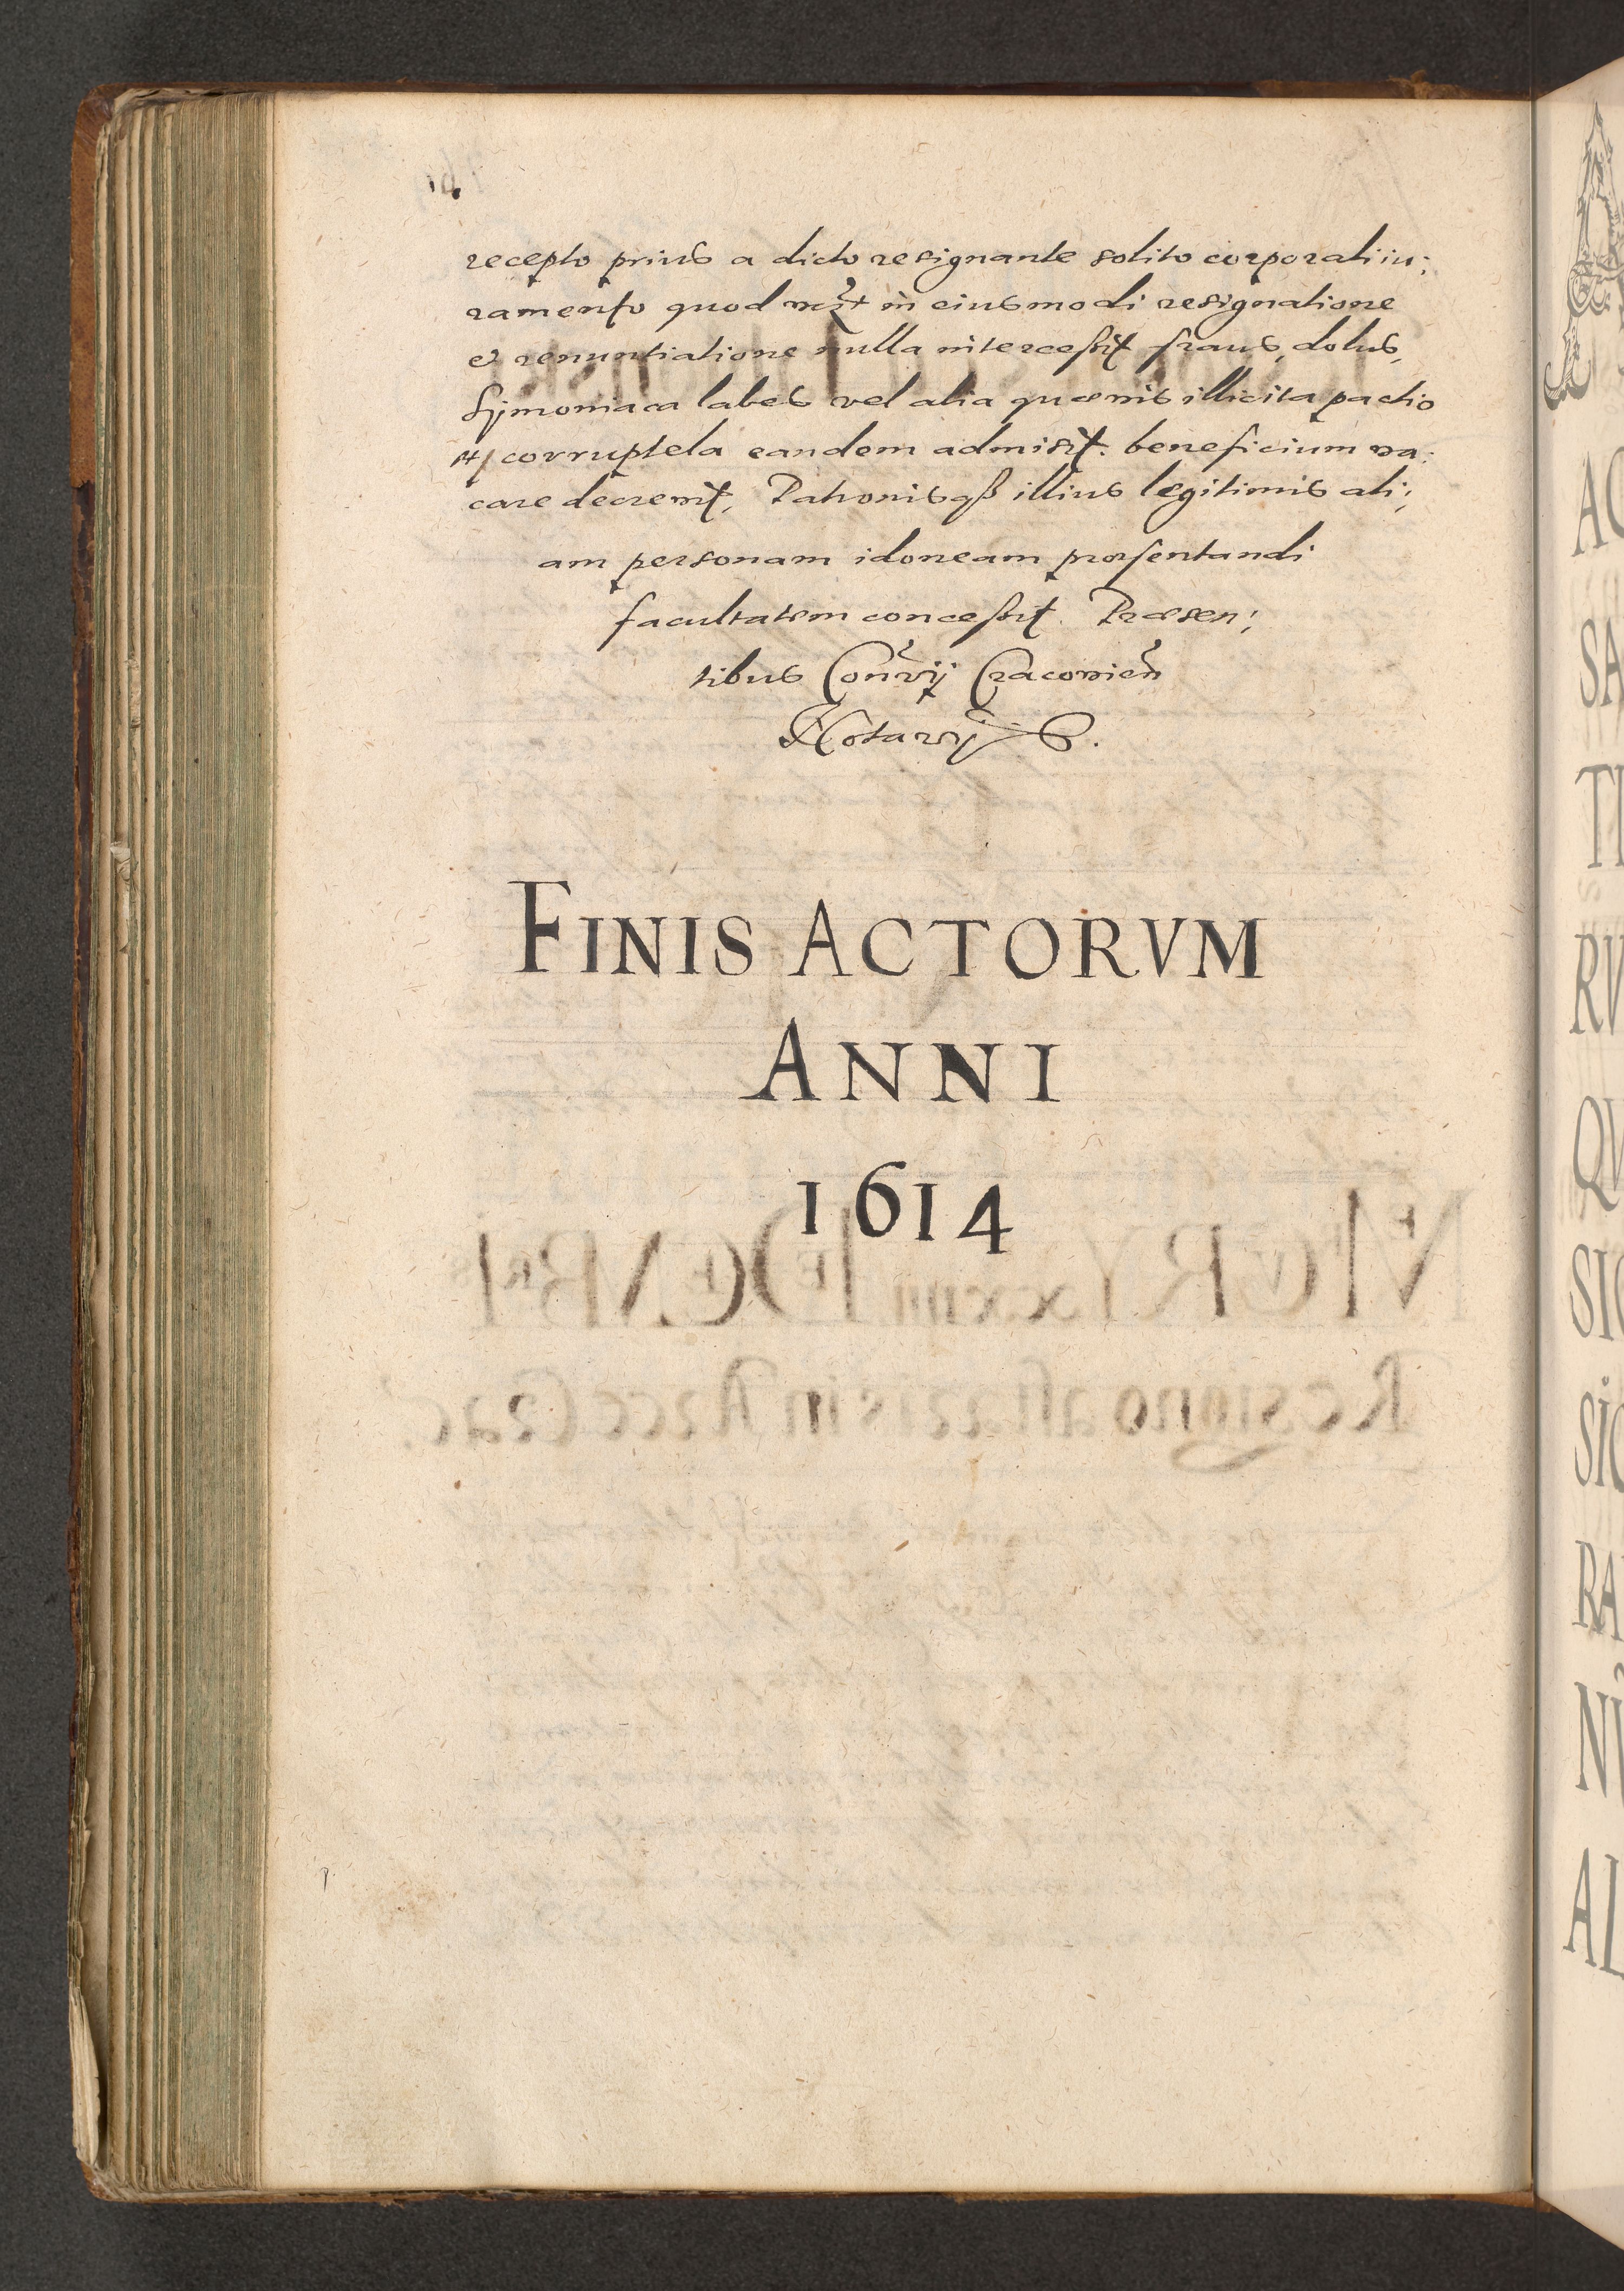 recepto prius a dicto resignante solito corporali iu:
ramento quod in eiusmodi resignatione
et renuntiatione nulla intercessit fraus, dolus,
Symoniaca labes vel alia quaevis illicita pactio
corruptela eandem admisit. beneficium va:
care decrevit, Patronisqß illius legitimis ali:
am personam idoneam praesentandi
facultatem concessit. Praesen:
tibus Cracovien
Notarij
FINIS ACTORVM
ANNI
1614